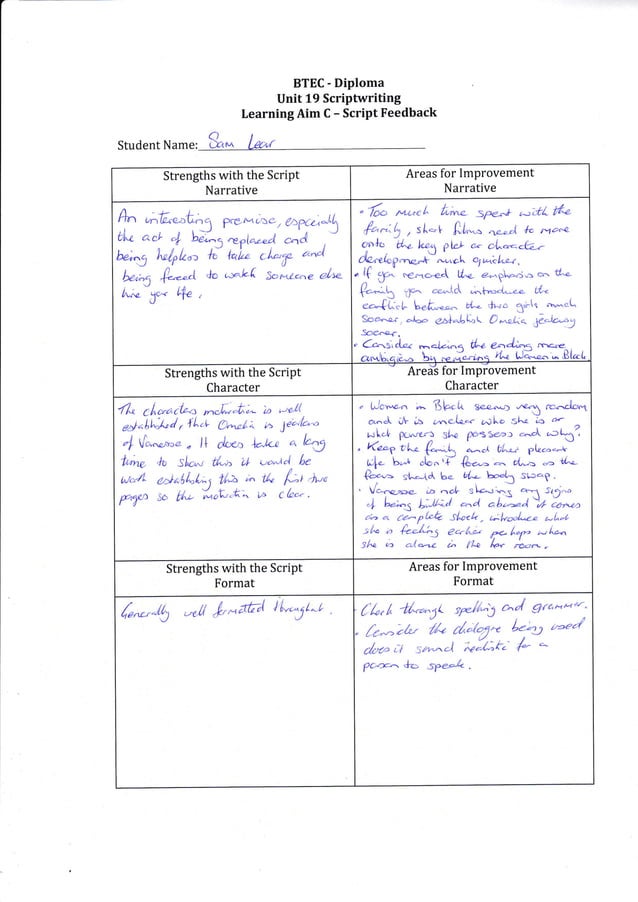 BTEC - Diploma
Unit 19 Scriptwriting
Learning Aim C – Script Feedback
Student Name: Sam Lear
Strengths with the Script
Narrative
An interesting premise, especially
the act of being replaced and
being helpless to take charge and
being forced to watch someone else
live your life,
Areas for Improvement
Narrative
• Too much time spent with the
family, short films need to move
onto the key plot or character
development much quicker.
• If you removed the emphasis on the
family you could introduce the
conflict between the two girls much
sooner, also establish Omelia jealousy
sooner.
• Consider making the ending more
ambigious by removing the Women in Black
Strengths with the Script
Character
The characters motivation is well
established, that Omelia is jealous
of Vanessa. It does take a long
time to show this it would be
worth establishing this in the first two
pages so the motivation is clear.
Areas for Improvement
Character
• Women in Black seems very random
and it is unclear who she is or
what powers she possess and why?
• Keep the family and their pleasant
life but don't focus on this as the
focus should be the body swap.
• Vanessa is not showing any signs
of being bullied and abused it comes
as a complete shock, introduce what
she is feeling earlier perhaps when
she is alone in the her room.
Strengths with the Script
Format
Generally well formatted throughout.
Areas for Improvement
Format
Check through spelling and grammar.
• Consider the dialogue being used
does it sound realistic for a
person to speak.